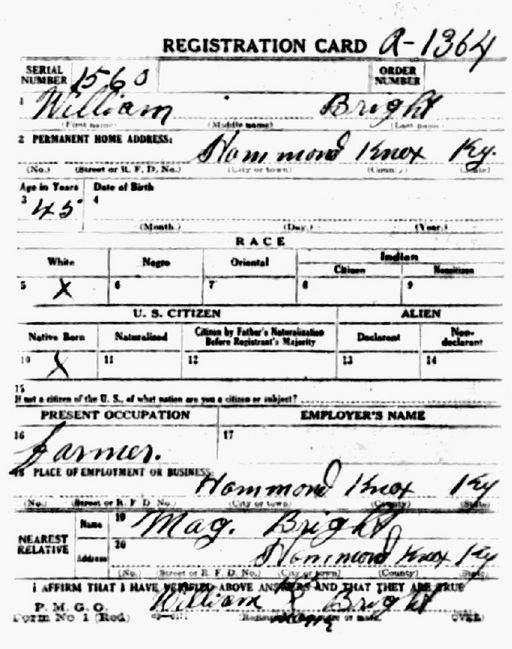 REGISTRATION CARD A-1364
SERIAL NUMBER 1560 ORDER NUMBER
1 William Bright
(First name) (Middle name) (Last name)
2 PERMANENT HOME ADDRESS:
Hammond Knox Ky.
(No.) (Street or R. F. D. No.) (City or town) (County) (State)
Age in Years Date of Birth
3 45 4
(Month.) (Day.) (Year.)
RACE
White Negro Oriental Indian
Citizen Noncitizen
5 X 6 7 8 9
U. S. CITIZEN ALIEN
Native Born Naturalized Citizen by Father's Naturalization Before Registrant's Majority Declarant Non-declarant
10 X 11 12 13 14
15
If not a citizen of the U. S., of what nation are you a citizen or subject?
PRESENT OCCUPATION EMPLOYER'S NAME
16 Farmer. 17
18 PLACE OF EMPLOYMENT OR BUSINESS:
Hammond Knox Ky
(No.) (Street or R. F. D. No.) (City or town) (County) (State)
NEAREST RELATIVE Name 19 Mag. Bright
Address 20 Hammond Knox Ky
(No.) (Street or R. F. D. No.) (City or town) (County) (State)
I AFFIRM THAT I HAVE VERIFIED ABOVE ANSWERS AND THAT THEY ARE TRUE
William Bright
P. M. G. O.
Form No 1 (Red) OVER)